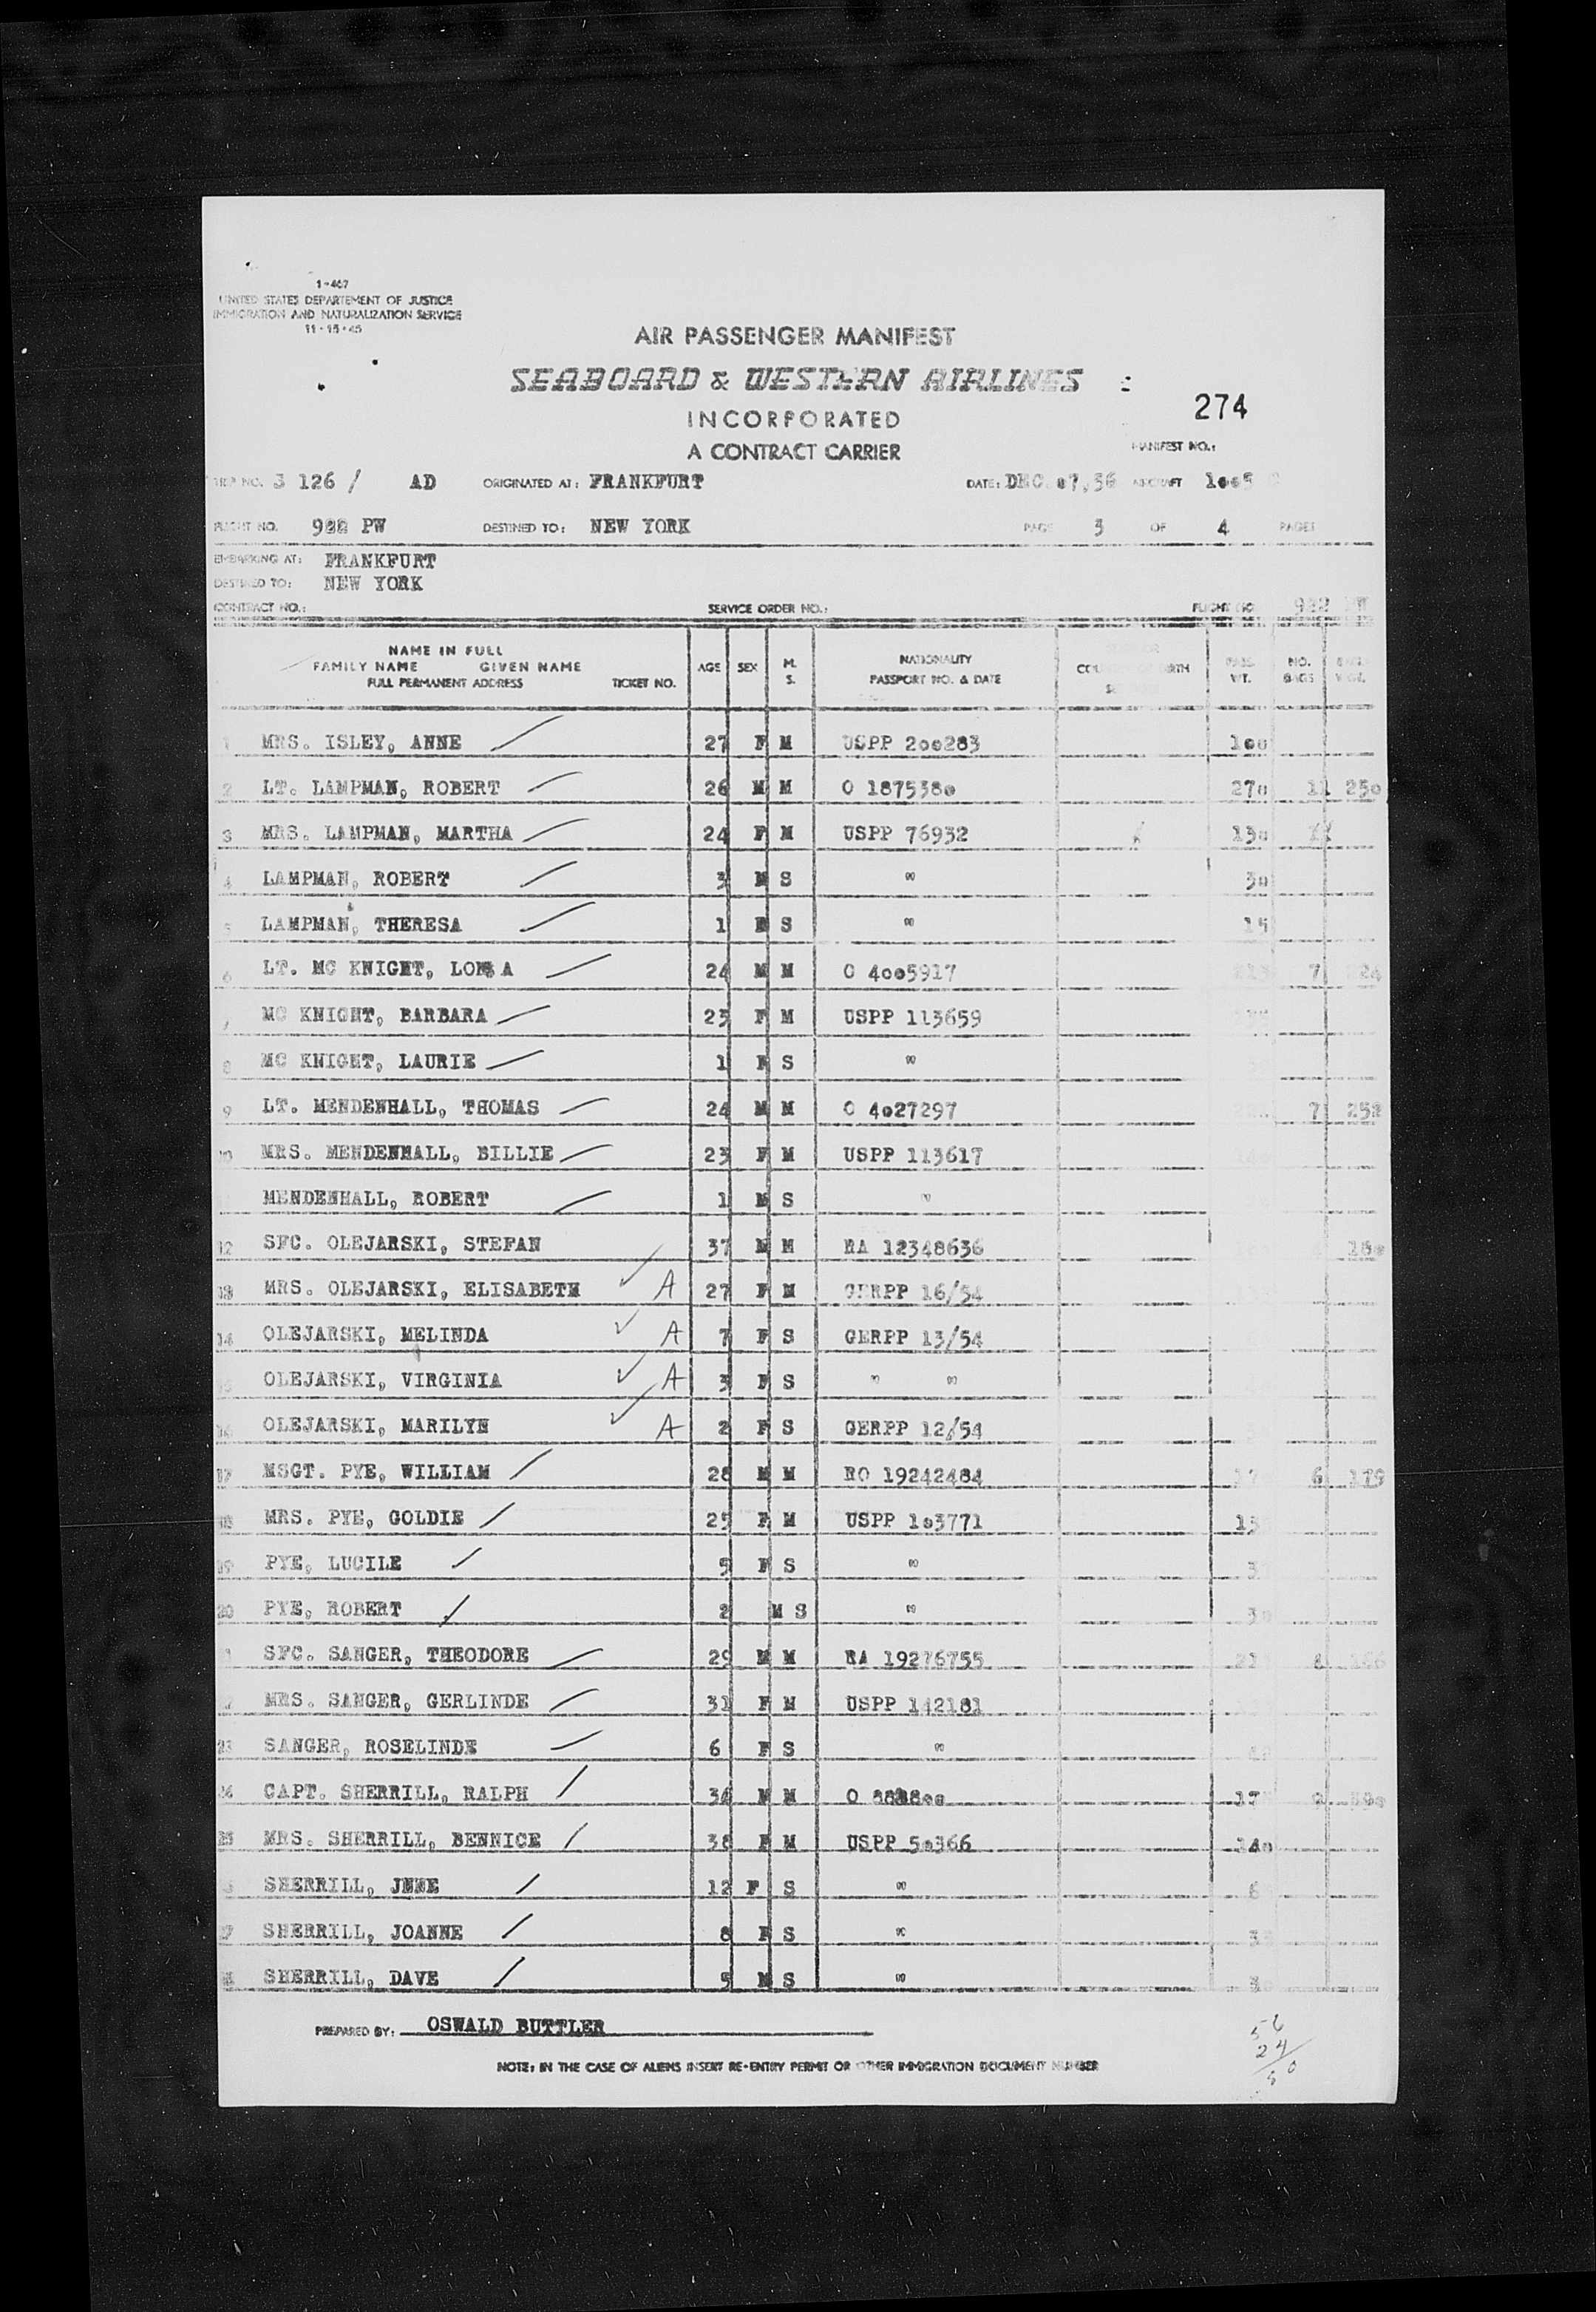 1-467
UNITED STATES DEPARTEMENT OF JUSTICE
IMMIGRATION AND NATURALIZATION SERVICE
11-15-45
AIR PASSENGER MANIFEST
SEABOARD & WESTERN AIRLINES
INCORPORATED
274
A CONTRACT CARRIER
MANIFEST NO.:
TRIP NO. S 126 / AD ORIGINATED AT: FRANKFURT DATE: DEC. 07,56 AIRCRAFT 1005
FLIGHT NO. 922 PW DESTINED TO: NEW YORK PAGE 3 OF 4 PAGES
EMBARKING AT: FRANKFURT
DESTINED TO: NEW YORK
CONTRACT NO.: SERVICE ORDER NO.: FLIGHT NO 922
NAME IN FULL
FAMILY NAME GIVEN NAME
FULL PERMANENT ADDRESS TICKET NO. AGE SEX M. S. NATIONALITY PASSPORT NO. & DATE BIRTH WT. NO. BAGS
1 MRS. ISLEY, ANNE 27 F M USPP 200283 100
2 LT. LAMPMAN, ROBERT 26 M M O 1875380 270 11 250
3 MRS. LAMPMAN, MARTHA 24 F M USPP 76932 130
4 LAMPMAN, ROBERT 3 M S " 30
5 LAMPMAN, THERESA 1 F S " 15
6 LT. MC KNIGHT, A 24 M M O 4005917 7
7 MC KNIGHT, BARBARA 23 F M USPP 113659
8 MC KNIGHT, LAURIE 1 F S "
9 LT. MENDENHALL, THOMAS 24 M M O 4027297 7 252
10 MRS. MENDENHALL, BILLIE 23 F M USPP 113617
MENDENHALL, ROBERT 1 M S "
12 SFC. OLEJARSKI, STEFAN 37 M M RA 12348636 180
13 MRS. OLEJARSKI, ELISABETH A 27 F M GERPP 16/54
14 OLEJARSKI, MELINDA A 7 F S GERPP 13/54
OLEJARSKI, VIRGINIA A 3 F S " "
16 OLEJARSKI, MARILYN A 2 F S GERPP 12/54
17 MSGT. PYE, WILLIAM 28 M M RO 19242484 6 179
18 MRS. PYE, GOLDIE 25 F M USPP 103771
19 PYE, LUCILE 5 F S "
20 PYE, ROBERT 2 M S "
SFC. SANGER, THEODORE 29 M M RA 19276755
MRS. SANGER, GERLINDE 31 F M USPP 142181
23 SANGER, ROSELINDE 6 F S "
CAPT. SHERRILL, RALPH 34 M M O
25 MRS. SHERRILL, BENNICE 38 F M USPP 50366 140
SHERRILL, JNNE 12 F S "
27 SHERRILL, JOANNE 8 F S "
SHERRILL, DAVE 5 M S "
PREPARED BY: OSWALD BUTTLER
56
24
80
NOTE: IN THE CASE OF ALIENS INSERT RE-ENTRY PERMIT OR OTHER IMMIGRATION DOCUMENT NUMBER